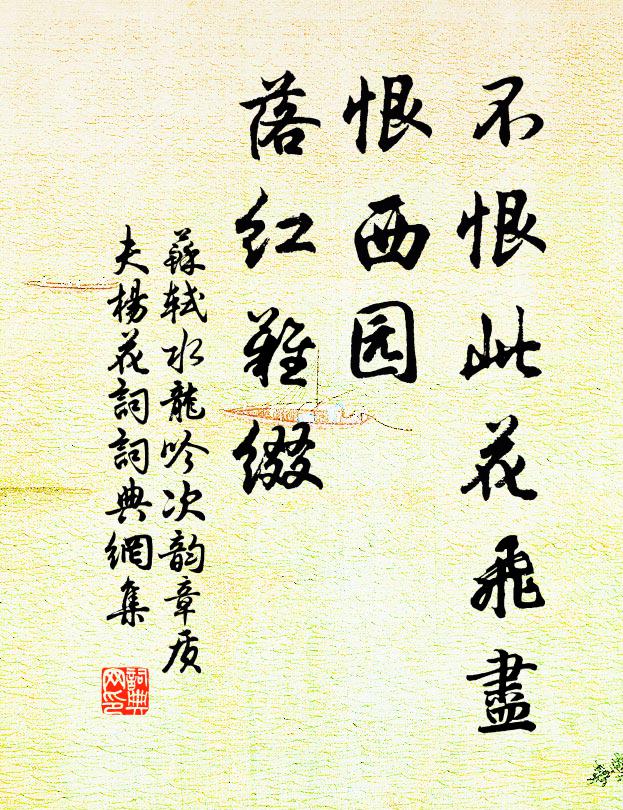 不恨此花飛盡
恨西园
落红難缀
蘇軾水龍吟次韵章质
夫楊花詞詞典網集
詞典
网印